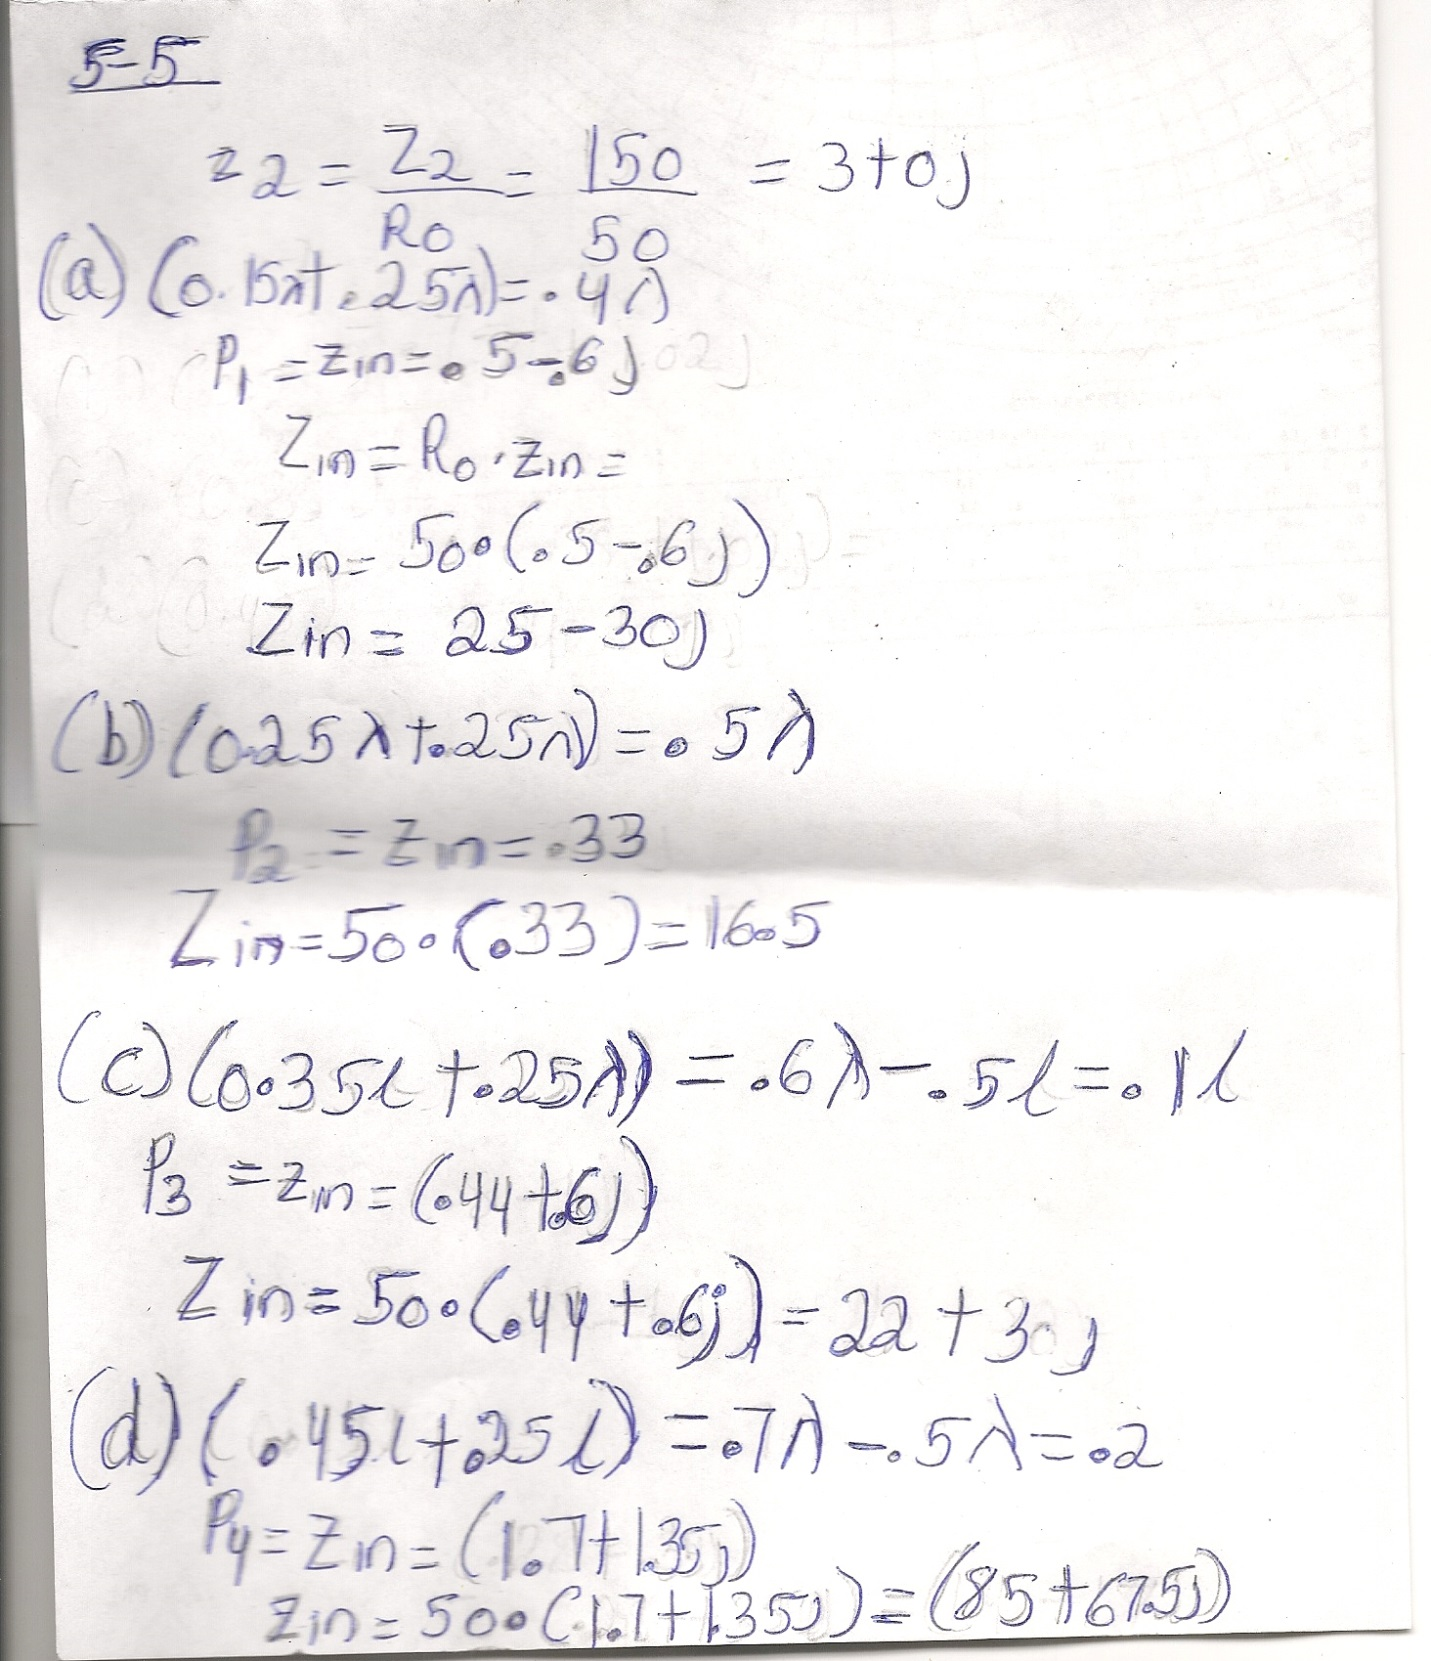 5-5
z2 = Z2 / R0 = 150 / 50 = 3+0j
(a) (0.15λ+.25λ)=.4λ
P1 = zin=.5-.6j
Zin=R0·zin=
Zin= 50•(.5-.6j)
Zin= 25-30j
(b) (0.25λ+.25λ)=.5λ
P2 = zin=.33
Zin=50•(.33)=16.5
(c) (0.35l+.25λ)=.6λ-.5l=.1l
P3 = zin=(.44+.6j)
Zin=50•(.44+.6j)=22+30j
(d) (.45l+.25l)=.7λ-.5λ=.2
P4= Zin=(1.7+1.35j)
Zin=50•(1.7+1.35j)=(85+67.5j)